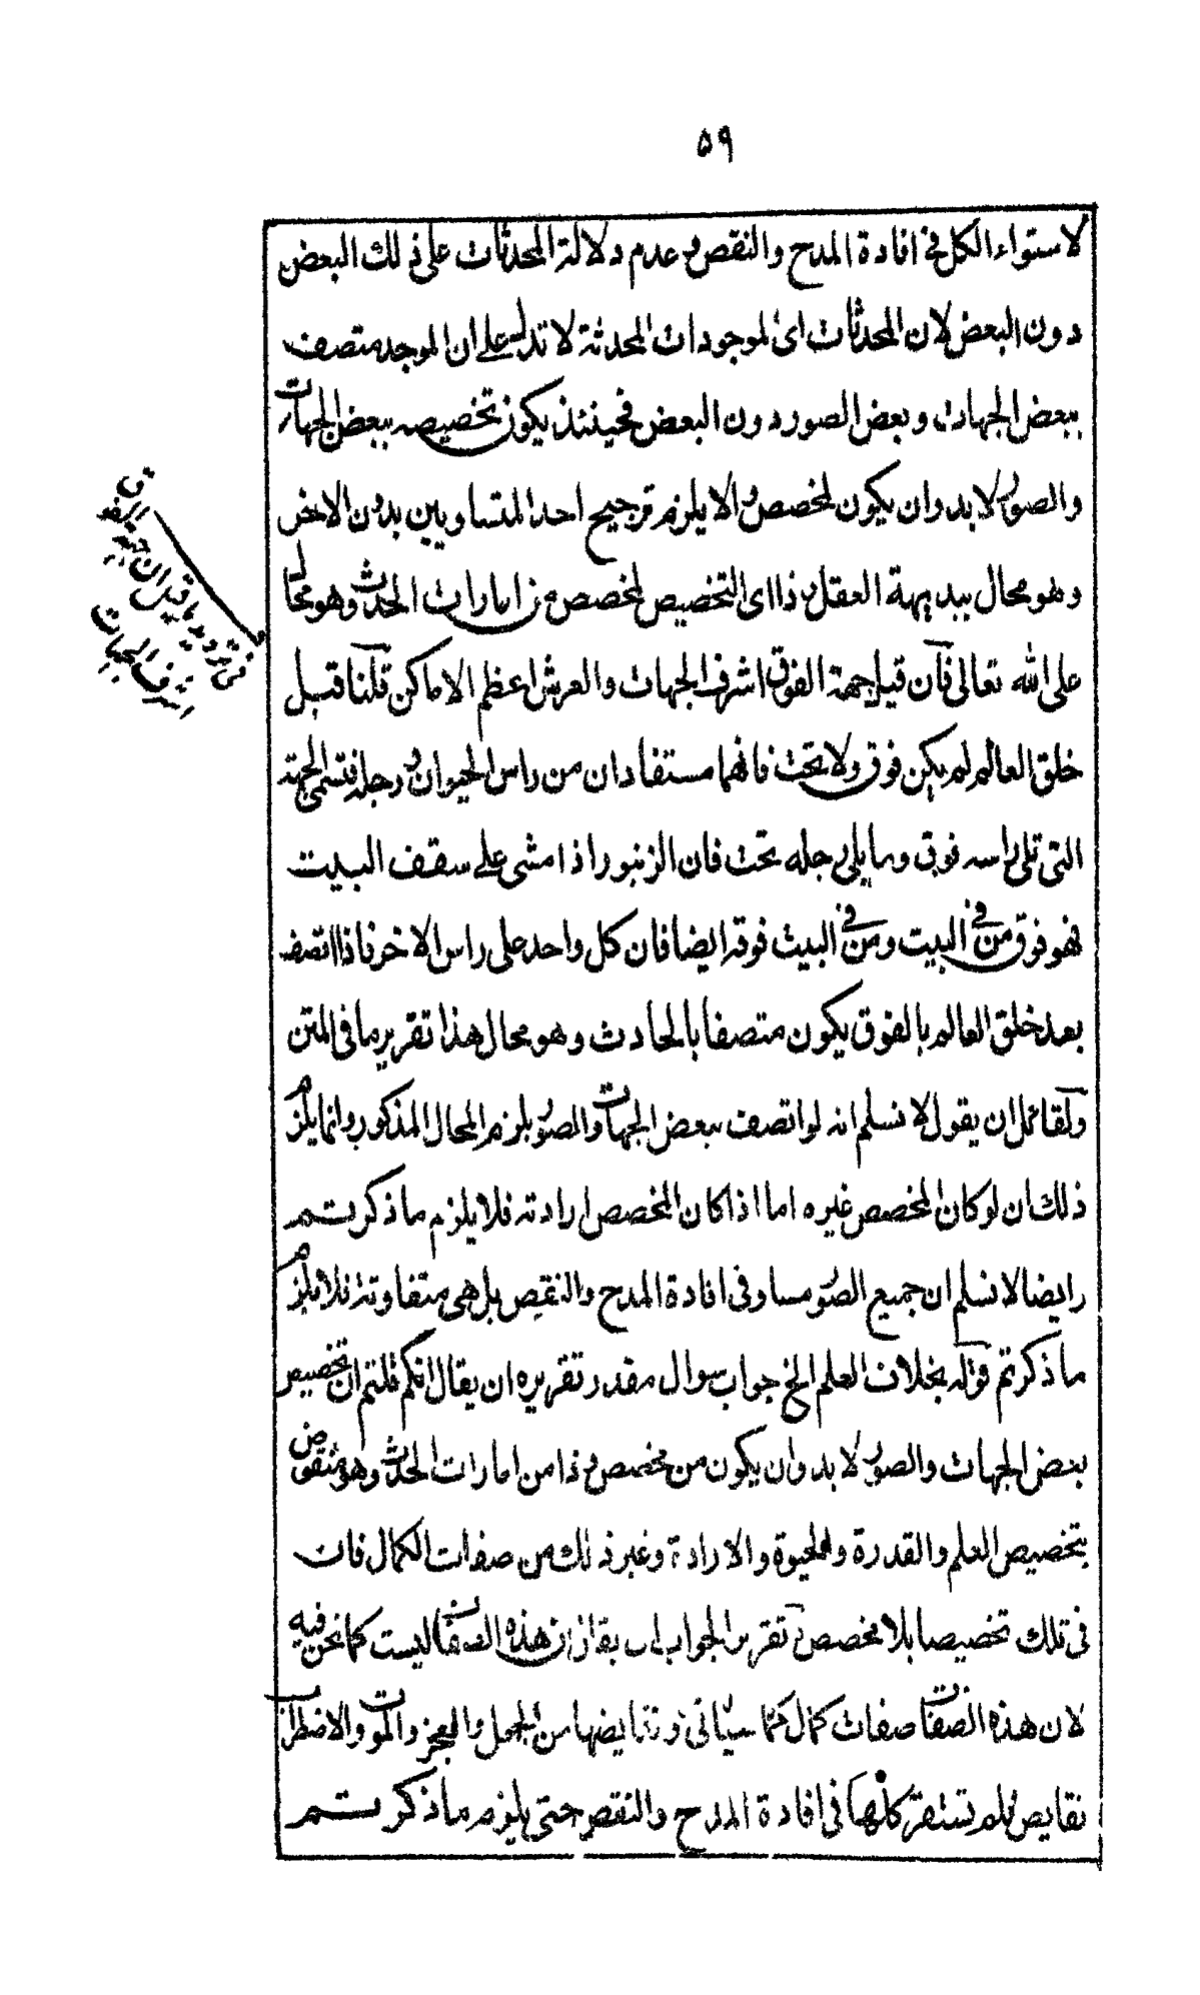 ۵۹
لاستواء الكل فى افادة المدح والنقص وعدم دلالة المحدثات على ذلك البعض
دون البعض لان المحدثات اى الموجودات المحدثة لا تدل على ان الموجد متصف
ببعض الجهات وبعض الصور دون البعض فحينئذ يكون تخصيصه ببعض الجهات
والصور لا بد وان يكون لمخصص والا يلزم ترجيح احد المتساويين بدون الاخر
وهو محال ببديهة العقل وذا اى التخصيص لمخصص من امارات الحدث وهو محال
على الله تعالى فان قيل جهة الفوق اشرف الجهات والعرش اعظم الاماكن قلنا قبل
خلق العالم لم يكن فوق ولا تحت فانهما مستفادان من راس الحيوان ورجله فتسمى الجهة
التى تلى راسه فوق وما يلى رجله تحت فان الزنبور اذا مشى على سقف البيت
فهو فوق من فى البيت ومن فى البيت فوقه ايضا فان كل واحد على راس الاخر فاذا اتصف
بعد خلق العالم بالفوق يكون متصفا بالحادث وهو محال هذا تقرير ما فى المتن
ولقائل ان يقول لا نسلم انه لو اتصف ببعض الجهات والصور يلزم المحال المذكور وانما يلزم
ذلك ان لو كان المخصص غيره اما اذا كان المخصص ارادته فلا يلزم ما ذكرتم
وايضا لا نسلم ان جميع الصور مساو فى افادة المدح والنقص بل هى متفاوتة فلا يلزم
ما ذكرتم قوله بخلاف العلم الخ جواب سوال مقدر تقريره ان يقال انكم قلتم ان تخصيص
بعض الجهات والصور لا بد وان يكون من مخصص وذا من امارات الحدث وهو منقوض
بتخصيص العلم والقدرة والحيوة والارادة وغير ذلك من صفات الكمال فان
فى تلك تخصيصا بلا مخصص تقرير الجواب ان يقال ان هذه الصفات ليست كما نحن فيه
لان هذه الصفات صفات كمال كما سياتى ونقايضها من الجهل والعجز والموت والاضطرار
نقايص فلم تستقر كلها فى افادة المدح والنقص حتى يلزم ما ذكرتم
فى ترديد ما قيل ان جهة الفوق
اشرف الجهات